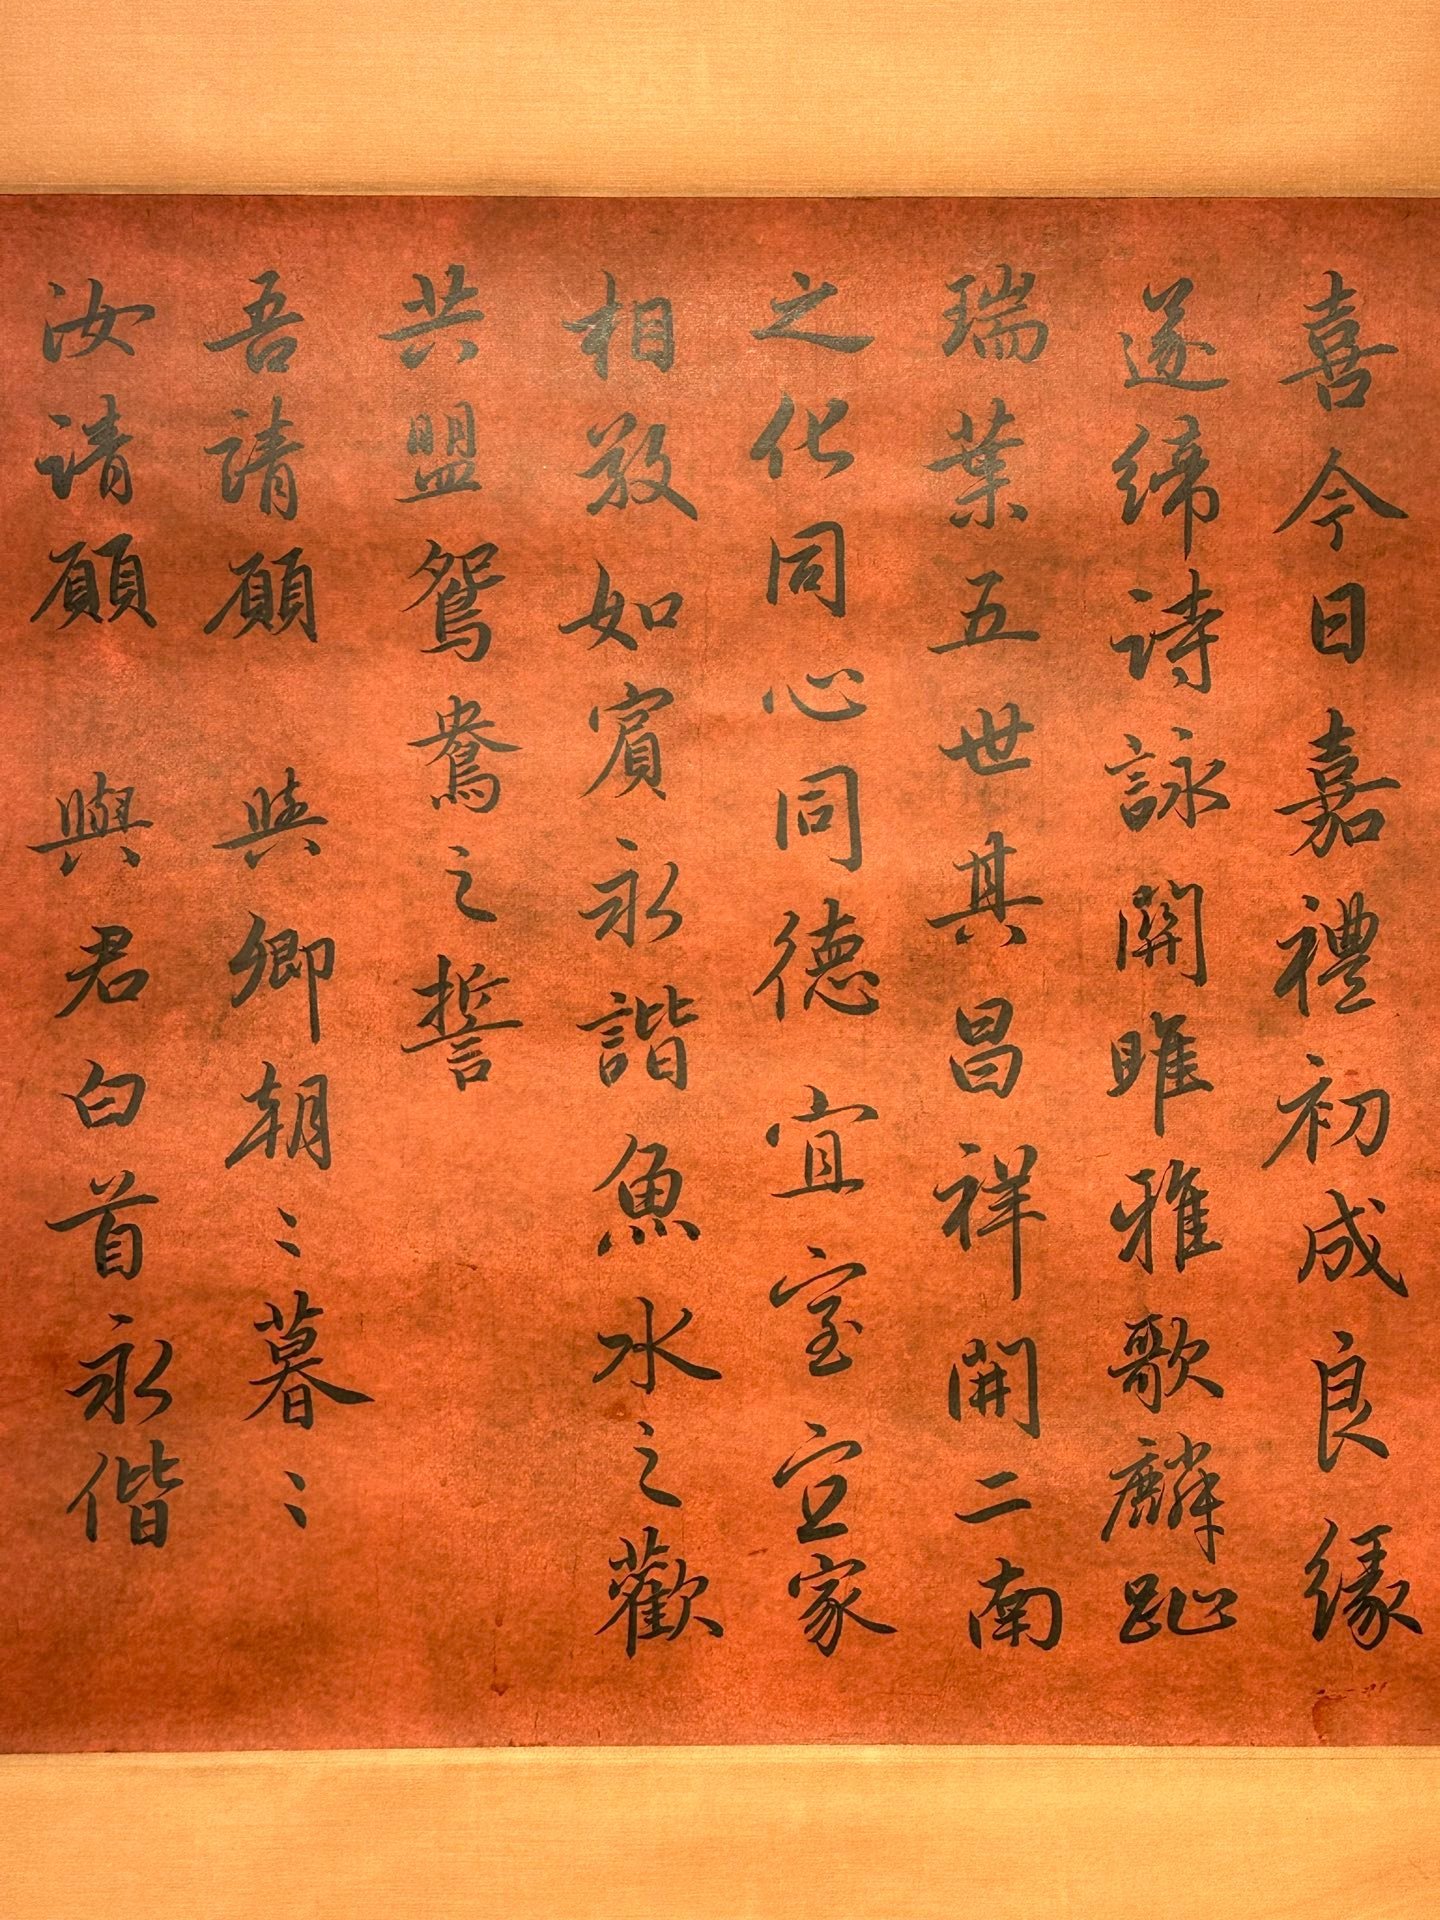 喜今日嘉禮初成良緣
遂締詩詠關雎雅歌麟趾
瑞葉五世其昌祥開二南
之化同心同德宜室宜家
相敬如賓永諧魚水之歡
共盟鴛鴦之誓
吾請願 與卿朝〻暮〻
汝請願 與君白首永偕